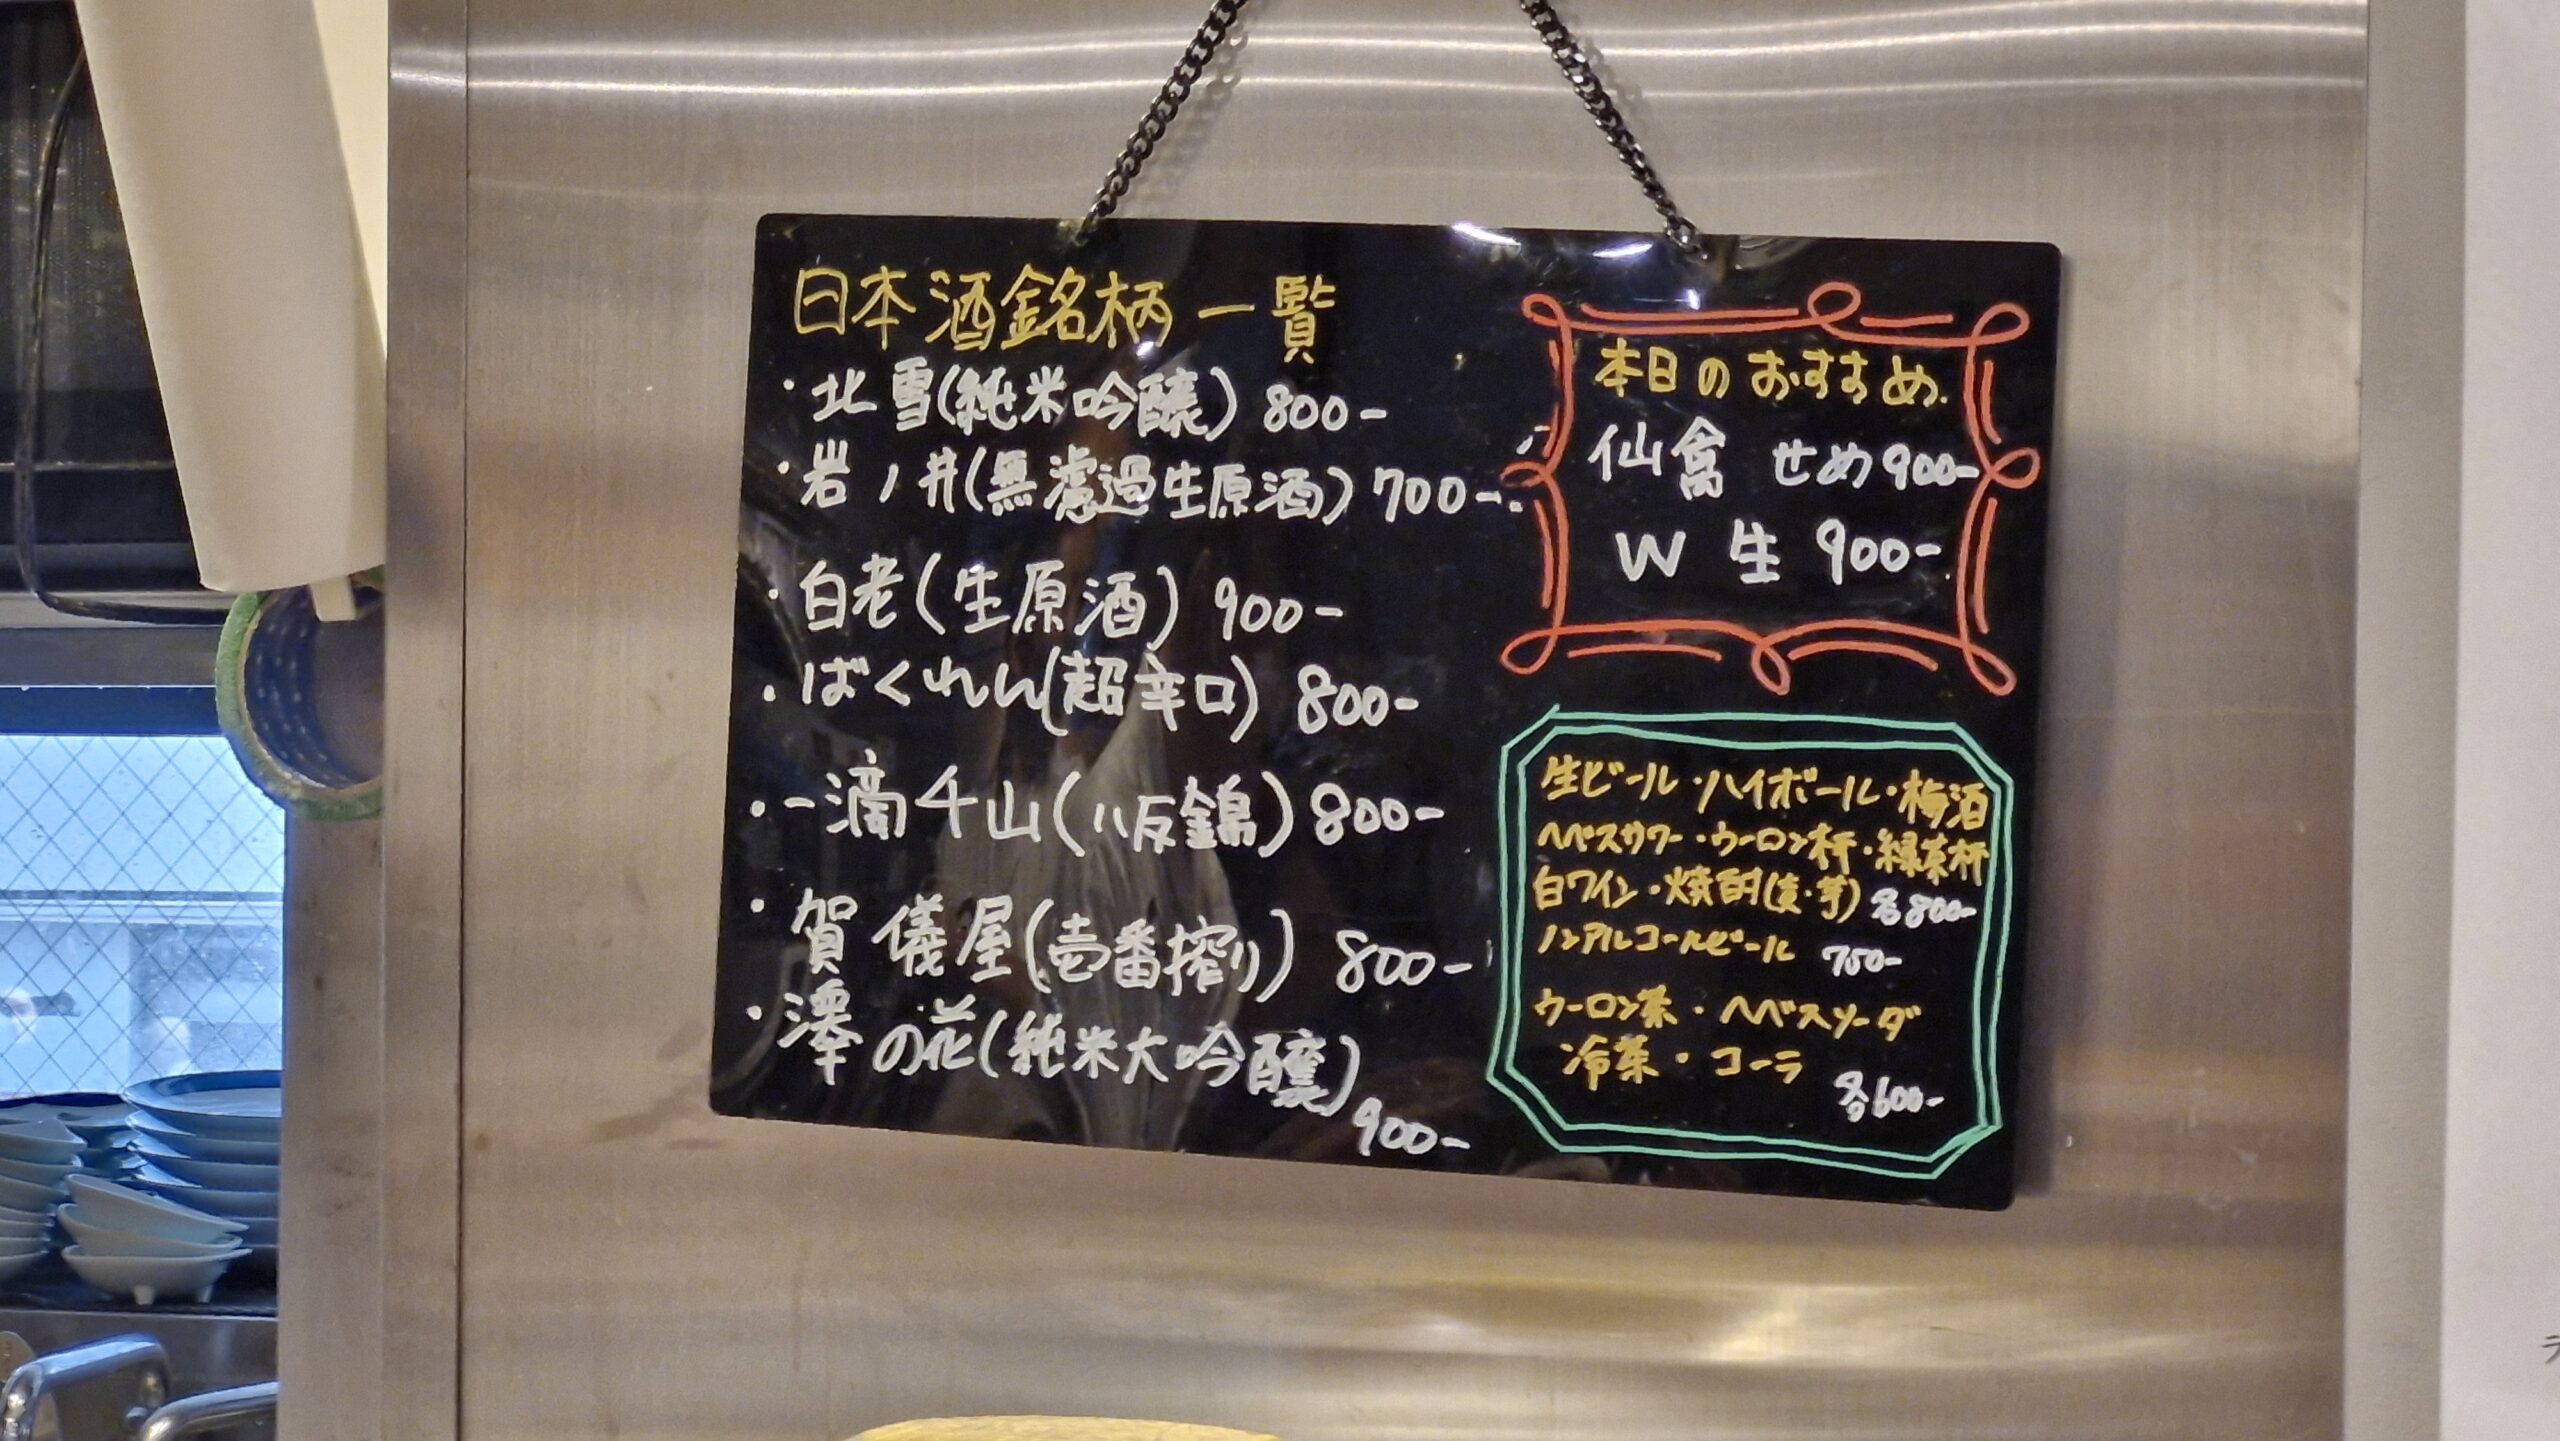 日本酒銘柄一覧
・北雪(純米吟醸) 800-
・岩ノ井(無濾過生原酒) 700-
・白老(生原酒) 900-
・ばくれん(超辛口) 800-
・一滴千山(八反錦) 800-
・賀儀屋(壱番搾り) 800-
・澤の花(純米大吟醸)
900-
本日のおすすめ
仙禽 せめ 900-
W 生 900-
生ビール・ハイボール・梅酒
ヘベスサワー・ウーロン杯・緑茶杯
白ワイン・焼酎(麦・芋) 各800-
ノンアルコールビール 750-
ウーロン茶・ヘベスソーダ
冷茶・コーラ
各600-